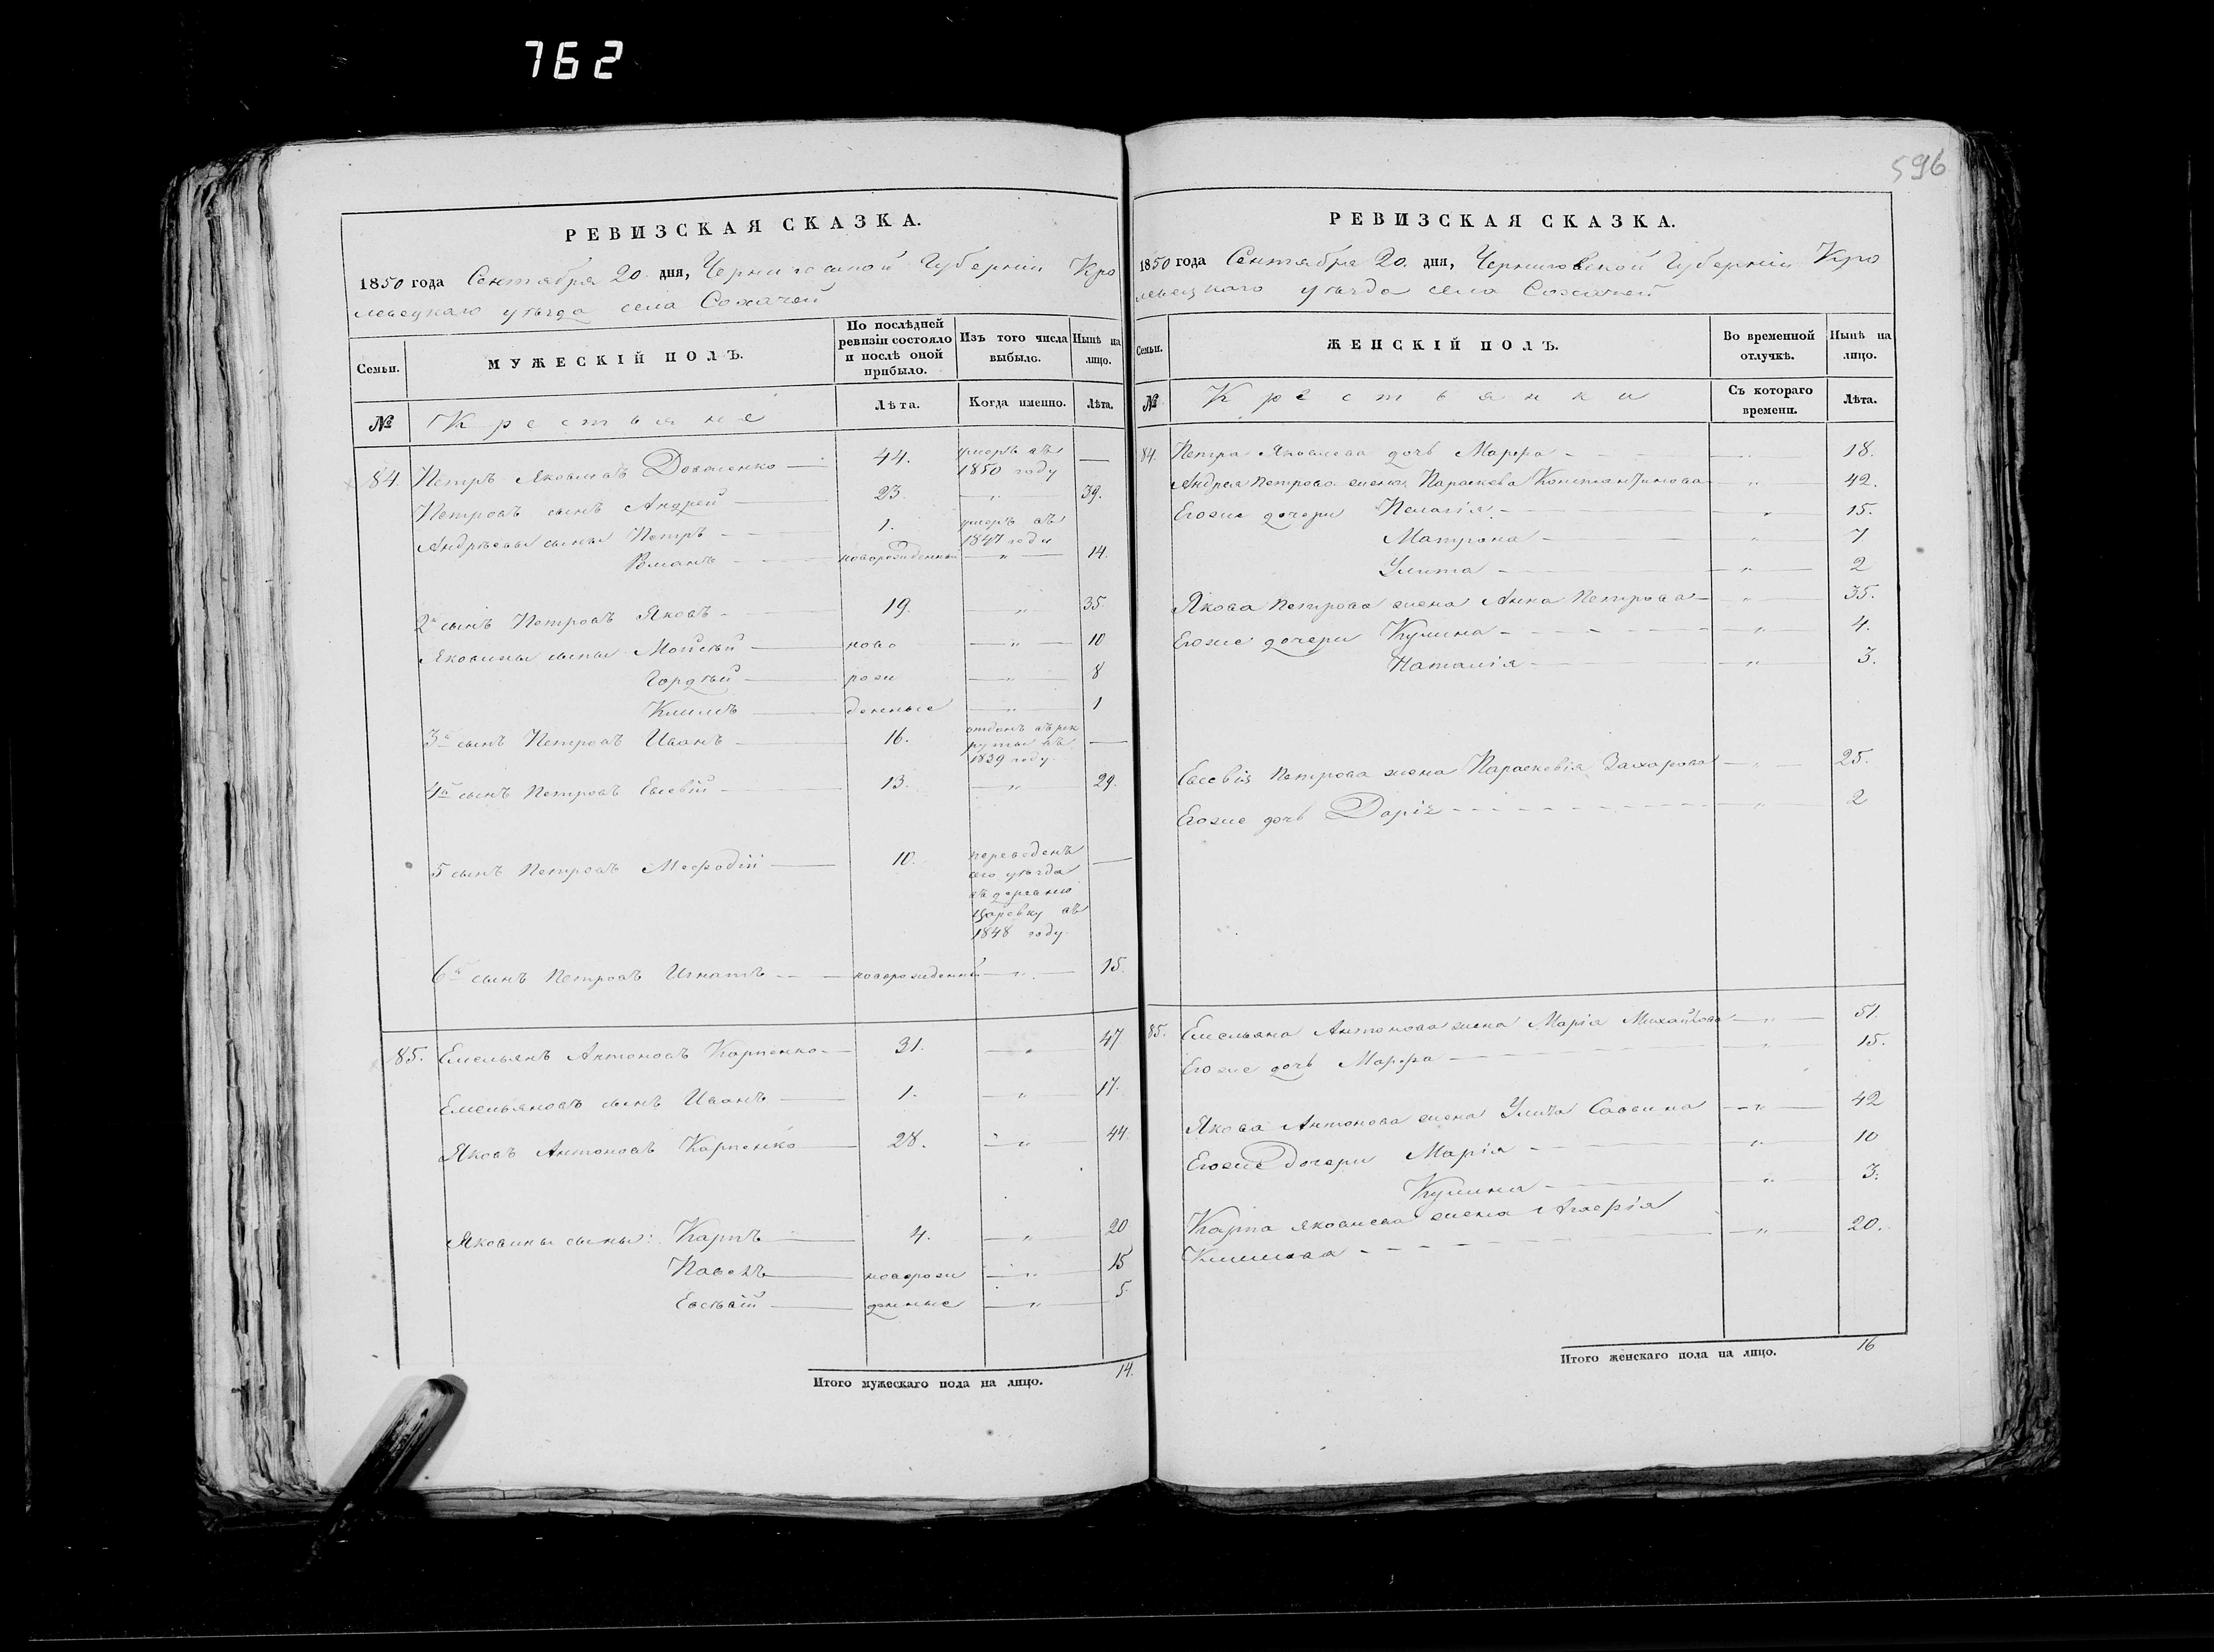 762
596
РЕВИЗСКАЯ СКАЗКА.
1850 года Сентября 20 дня, Черниговской Губерніи Кро
левецкаго уѣзда села Сохачей
Семьи.
МУЖЕСКІЙ ПОЛЪ.
По послѣдней ревизіи состояло и послѣ оной прибыло.
Изъ того числа выбыло.
Нынѣ на лицо.
№ Крестьяне Лѣта. Когда именно. Лѣта.
84 Петръ Яковлевъ Доваленко — 44. умеръ въ 1850 году —
Петровъ сынъ Андрей — 23. — „ — 39.
Андрѣевы сыны Петръ — 1. умеръ въ 1847 году
Романъ — новорожденный — „ — 14.
2й сынъ Петровъ Яковъ — 19. — „ — 35.
Яковлевы сыны Мойсѣй — ново — „ — 10
Гордѣй — рож — „ — 8
Климъ — денные — „ — 1
3й сынъ Петровъ Иванъ — 16. отданъ въ рек руты въ 1839 году. —
4й сынъ Петровъ Евсевій — 13. — „ — 29.
5 сынъ Петровъ Мефодій — 10. переведенъ
его уѣзда
въ деревню
Царевку въ
1848 году —
6й сынъ Петровъ Игнатъ — новорожденный — „ — 15.
85. Емельянъ Антоновъ Карпенко — 31. — „ — 47
Емельяновъ сынъ Иванъ — 1. — „ — 17.
Яковъ Антоновъ Карпенко — 28. — „ — 44.
Яковлевы сыны: Карпъ — 4. — „ — 20
Павелъ — новорож — „ — 15
Евсѣвій — денные — „ — 5.
Итого мужескаго пола на лицо. 14.
РЕВИЗСКАЯ СКАЗКА.
1850 года Сентября 20. дня, Черниговской Губерніи Кро
левецкаго уѣзда села Сохачей
Семьи.
ЖЕНСКІЙ ПОЛЪ.
Во временной отлучкѣ.
Нынѣ на лицо.
№ Крестьянки Съ котораго времени. Лѣта.
84. Петра Яковлева дочь Марфа — „ — 18.
Андрея Петрова жена Параскева Константинова — „ — 42.
Егоже дочери Пелагія — „ — 15.
Матрона — „ — 7
Улита — „ — 2
Якова Петрова жена Анна Петрова — „ — 35.
Егоже дочери Кулина — „ — 4.
Наталія — „ — 3.
Евсевія Петрова жена Параскевія Захарова — „ — 25.
Егоже дочь Дарія — „ — 2
85. Емельяна Антонова жена Марія Михайлова — „ — 51.
Егоже дочь Марфа — „ — 15.
Якова Антонова жена Улита Саввина — „ — 42
Егоже дочери Марія — „ — 10
Кулина — „ — 3.
Карпа Яковлева жена Агафія
Климова — „ — 20.
Итого женскаго пола на лицо. 16